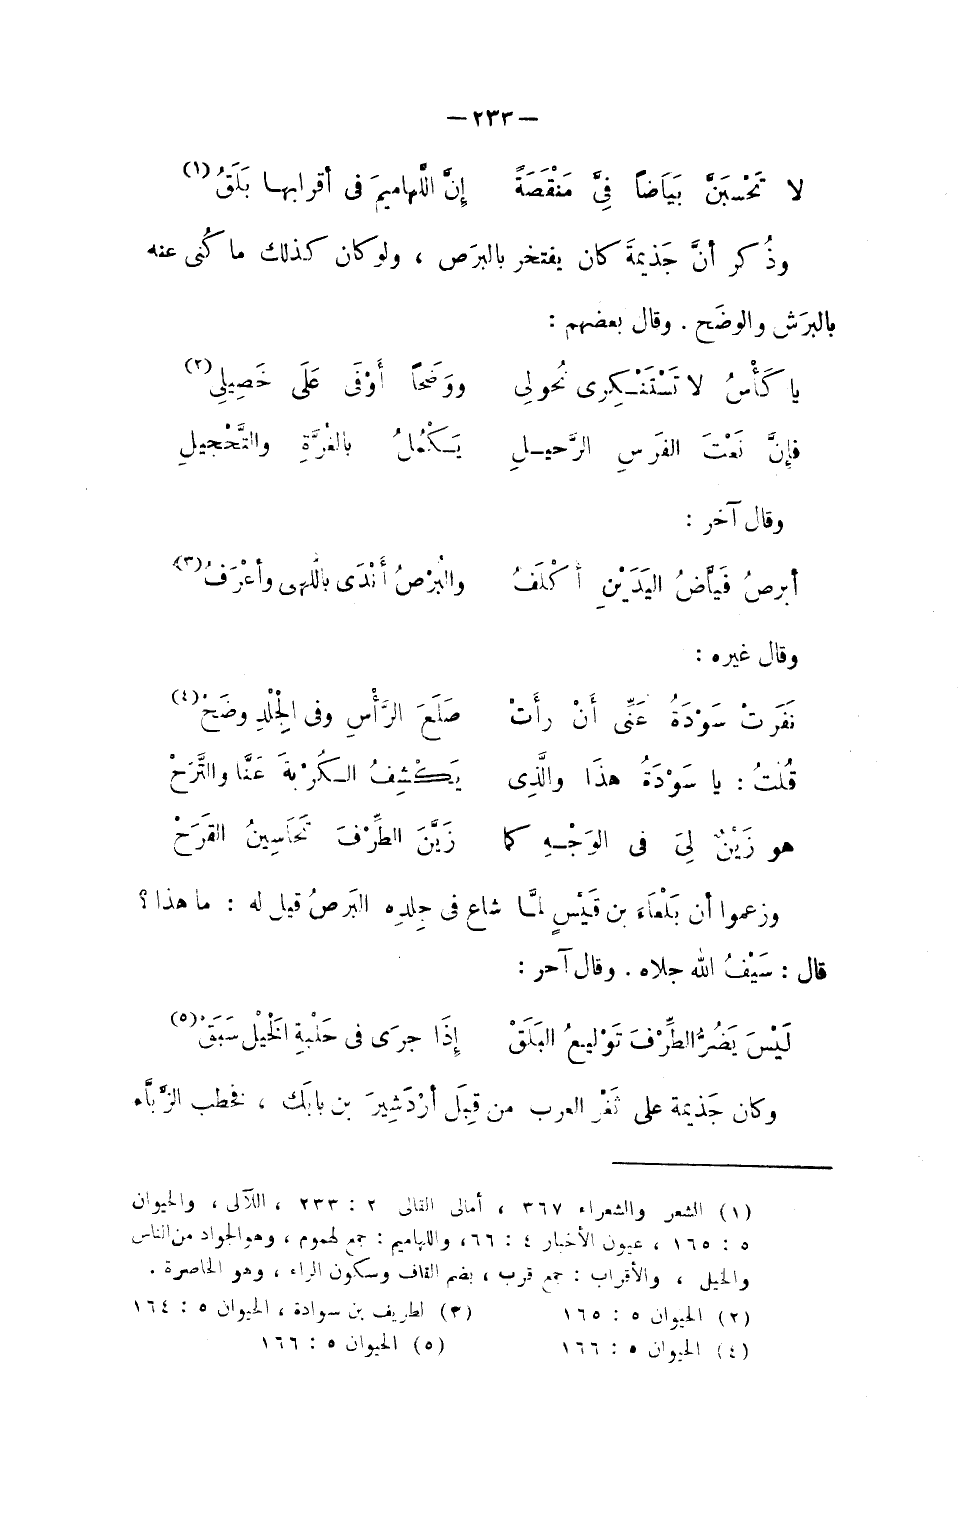 — ٢٣٣ —
لا تَحْسبَنَّ بَيَاضاً فِيَّ مَنْقَصَةً إنَّ اللَّهاميمَ فى أقرابها بَلَقُ (١)
وذُكر أنَّ جَذيمَةَ كان يفتخر بالبرَص ، ولو كان كذلك ما كُنى عنه
بالبرَش والوضَح . وقال بعضهم :
يا كَأْسُ لا تَسْتَنْكِرى نُحولى ووَضَحاً أَوْفَى عَلَى خَصِيلِى (٢)
فإنَّ نَعْتَ الفرَسِ الرَّحيلِ يَكْمُلُ بالغُرَّةِ والتَّحْجيلِ
وقال آخر :
أبرصُ فَيَّاضُ اليَدَيْنِ أَكْلَفُ والبُرْصُ أَنْدَى باللُّهى وأعْرَفُ (٣)
وقال غيره :
نَفَرتْ سَوْدَةُ عَنِّى أَنْ رأَتْ صَلَعَ الرَّأْسِ وفى الجِلْدِ وضَحْ (٤)
قُلتُ : يا سَوْدَةُ هذَا والَّذِى يَكْشِفُ الكُرْبةَ عَنَّا والتَّرَحْ
هو زَيْنٌ لِىَ فى الوَجْهِ كما زَيَّنَ الطِّرْفَ تَحَاسِينُ القَرَحْ
وزعموا أن بَلْعَاءَ بن قَيْسٍ لمَّا شاع فى جِلدِه البَرصُ قيل له : ما هذا ؟
قال : سَيْفُ الله جلاه . وقال آخر :
لَيْسَ يَضُرُّ الطِّرْفَ تَوْليعُ البَلَقْ إذَا جرَى فى حَلْبةِ الخَيْل سَبَقْ (٥)
وكان جَذيمة على ثَغْر العرب من قِبَل أرْدَشِيرَ بن بابَك ، فخطب الزَّبَّاء
(١) الشعر والشعراء ٣٦٧ ، أمالى القالى ٢ : ٢٣٣ ، اللآلى ، والحيوان
٥ : ١٦٥ ، عيون الأخبار ٤ : ٦٦ ، واللهاميم : جمع لهموم ، وهو الجواد من الناس
والخيل ، والأقراب : جمع قرب ، بضم القاف وسكون الراء ، وهو الخاصرة .
(٢) الحيوان ٥ : ١٦٥ (٣) لطريف بن سوادة ، الحيوان ٥ : ١٦٤
(٤) الحيوان ٥ : ١٦٦ (٥) الحيوان ٥ : ١٦٦